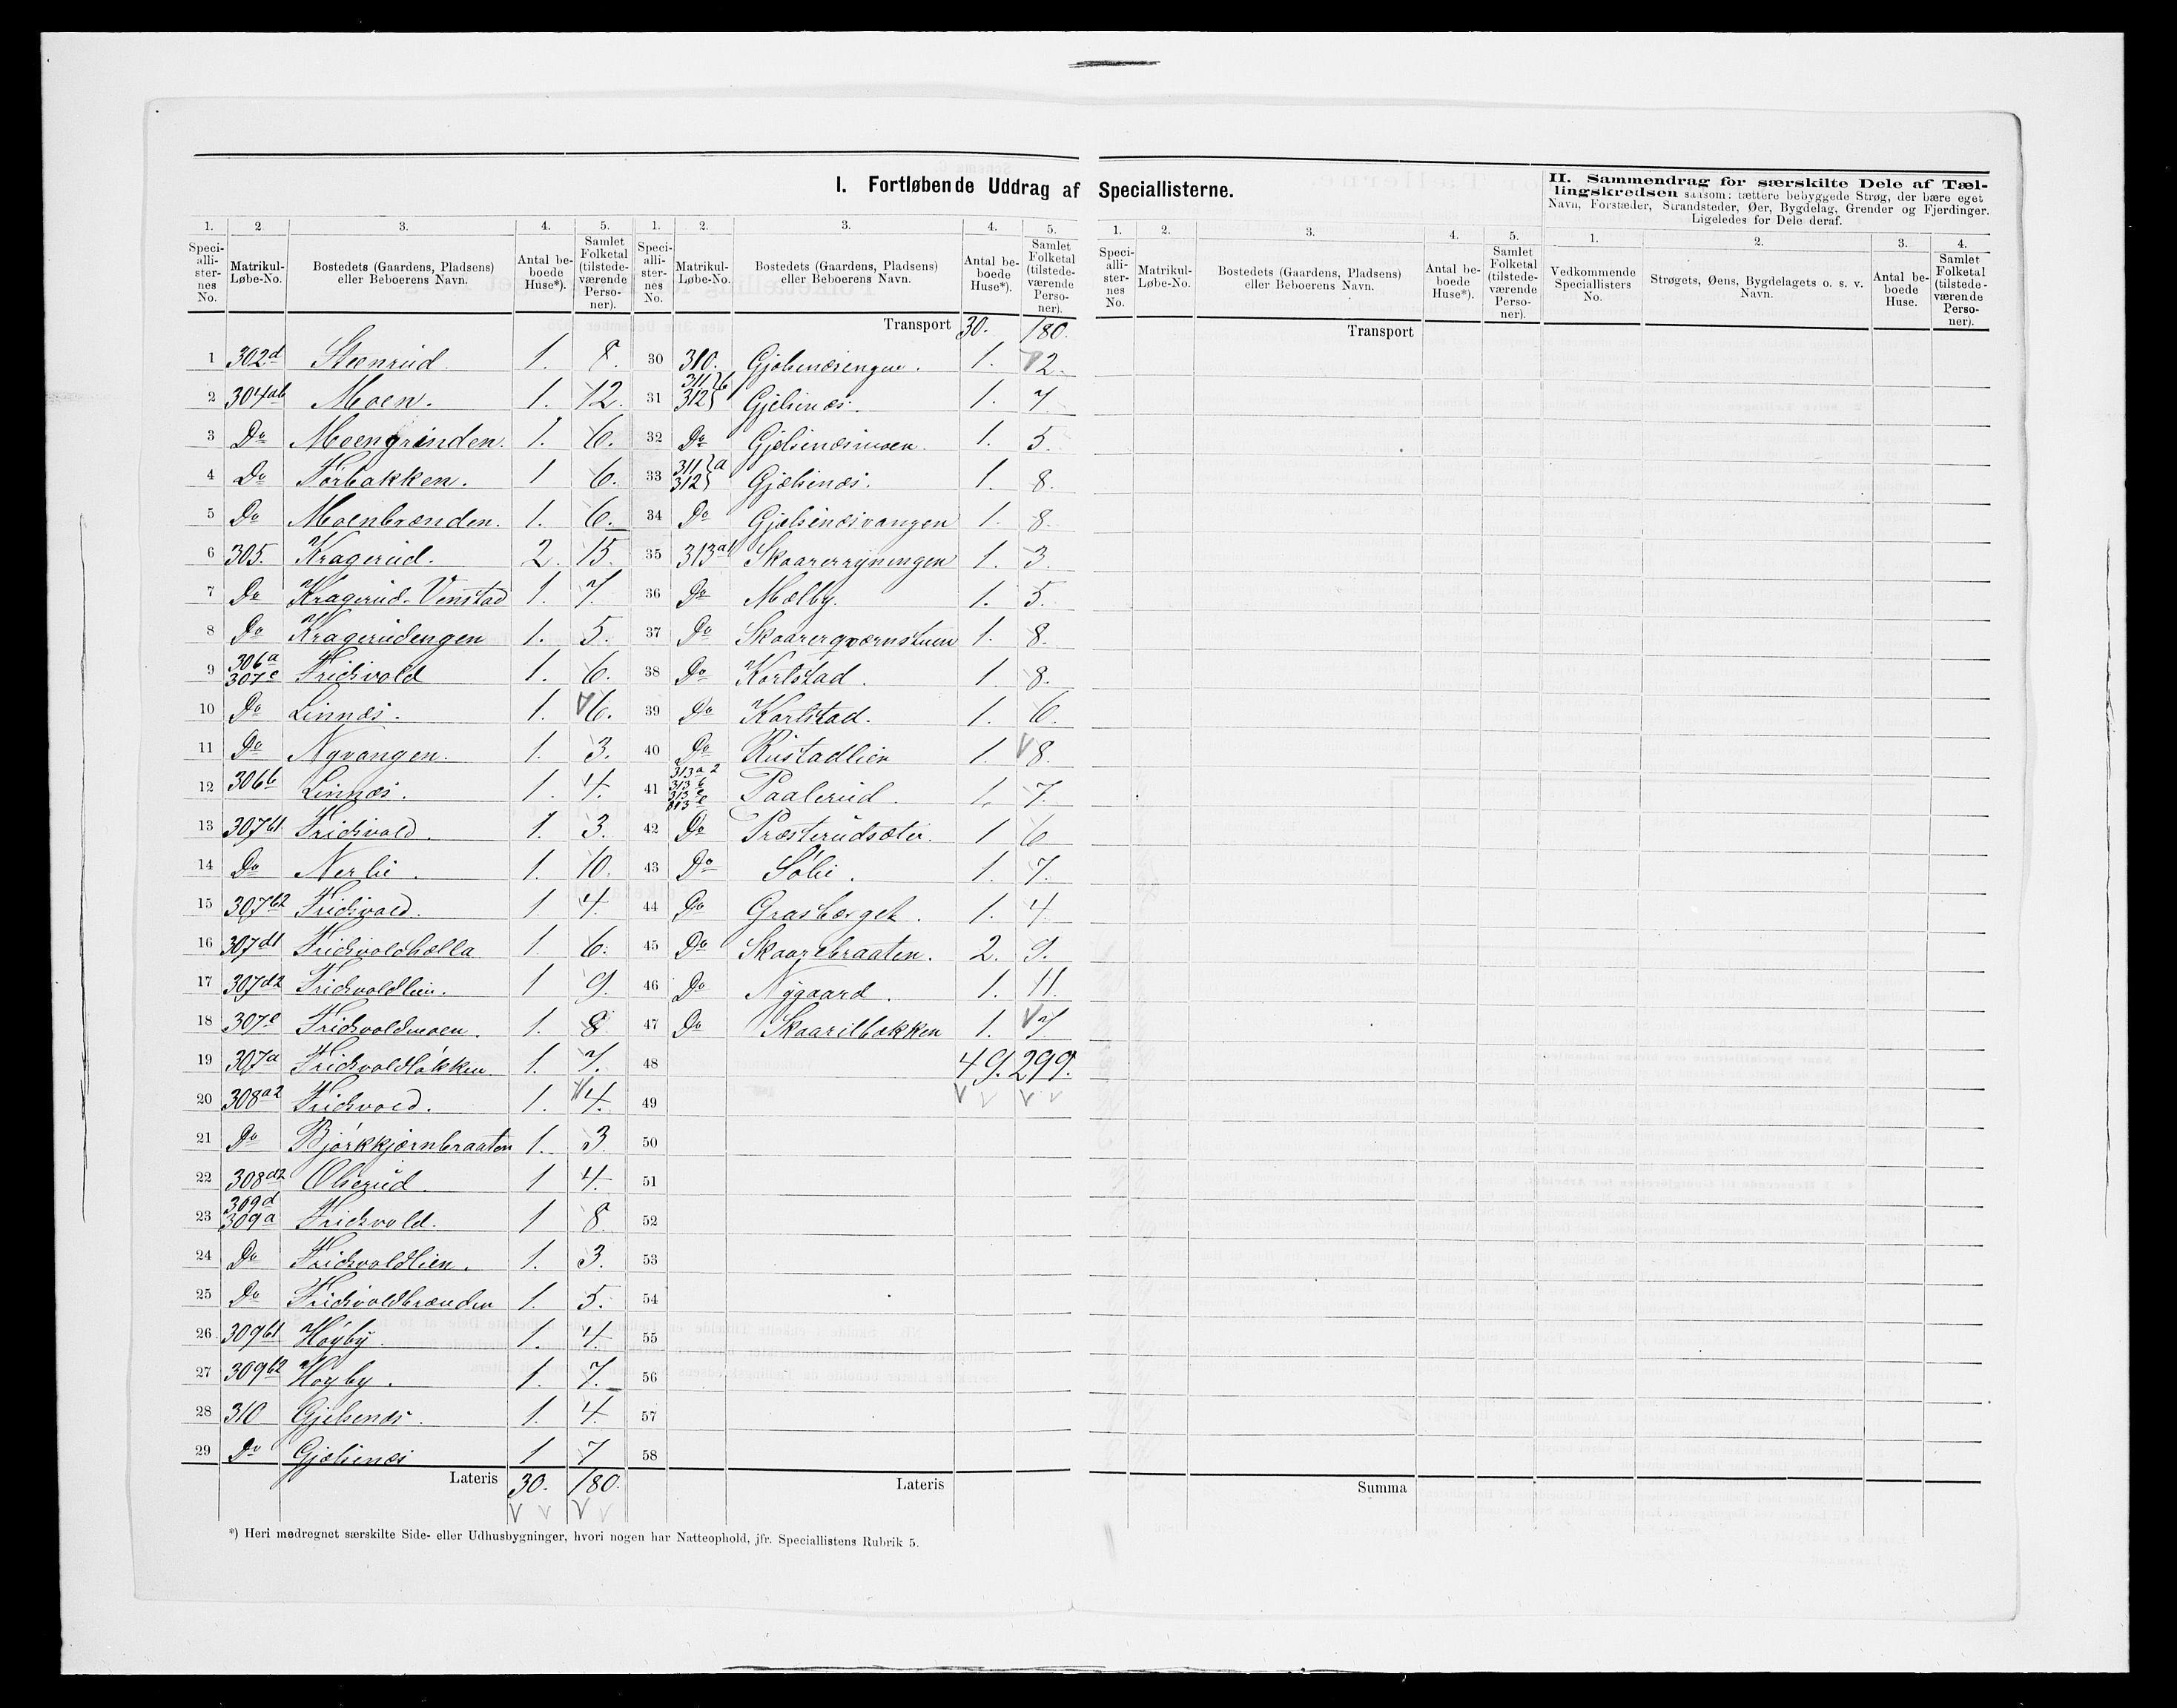 I. Fortløbende Uddrag af Speciallisterne.
II. Sammendrag for særskilte Dele af Tællingskredsen saasom: tættere bebyggede Strøg, der bære eget Navn, Forstæder, Strandsteder, Øer, Bygdelag, Grender og Fjerdinger. Ligeledes for Dele deraf.
1. 2 3. 4. 5. 1. 2. 3. 4. 5. 1. 2. 3. 4. 5. 1. 2. 3. 4.
Speciallisternes No. Matrikul-Løbe-No. Bostedets (Gaardens, Pladsens) eller Beboerens Navn. Antal beboede Huse*). Samlet Folketal (tilstedeværende Personer).
Speciallisternes No. Matrikul-Løbe-No. Bostedets (Gaardens, Pladsens) eller Beboerens Navn. Antal beboede Huse*). Samlet Folketal (tilstedeværende Personer).
Speciallisternes No. Matrikul-Løbe-No. Bostedets (Gaardens, Pladsens) eller Beboerens Navn. Antal beboede Huse*). Samlet Folketal (tilstedeværende Personer).
Vedkommende Speciallisters No. Strøgets, Øens, Bygdelagets o. s. v. Navn. Antal beboede Huse. Samlet Folketal (tilstedeværende Personer).
1 302d Steenrud. 1. 8.
2 304ab Moen. 1. 12.
3 Do Moengrinden. 1. 6.
4 Do Tørbakken. 1 6.
5 Do Moenbrænden. 1. 6.
6 305. Kragerud. 2. 15.
7 Do Kragerud-Venstad 1. 7.
8 Do Kragerudengen 1. 5.
9 306a 307c Frichvold 1. 6.
10 Do Linnæs. 1. 6.
11 Do Nyvangen. 1. 3.
12 306b Linnæs. 1. 4.
13 307b1 Frichvold. 1. 3.
14 Do Nerlie. 1. 10.
15 307b2 Frichvold. 1 4.
16 307d1 Frichvoldhælla 1. 6.
17 307d2 Frichvoldlien. 1 9.
18 307e Frichvoldmoen. 1. 8
19 307a Frichvoldløkken 1. 7.
20 308a2 Frichvold. 1. 4.
21 Do Bjørkkjernbraaten 1. 3
22 308d2 Olserud. 1 4.
23 309d 309a Frichvold. 1 8.
24 Do Frichvoldlien. 1. 3.
25 Do Frichvoldbrænden 1. 5.
26 309b1 Høyby. 1. 4.
27 309b2 Høyby. 1. 7.
28 310 Gjelsenæs. 1. 4.
29 Do Gjælsenæs 1 7
Lateris 30. 180.
Transport 30. 180.
30 310. Gjelsenæsengen. 1. 2.
31 311 312 b Gjelsenæs. 1. 7.
32 Do Gjelsenæsmoen. 1. 5.
33 311 312 a Gjælsenæs. 1. 8.
34 Do Gjælsenæsvangen 1. 8.
35 313a1 Skaarerrygningen 1. 3.
36 Do Mælby. 1. 5.
37 Do Skaarerqværnstuen 1. 8.
38 Do Karlstad. 1. 8.
39 Do Karlstad. 1. 6.
40 Do Rustadlien 1. 8.
41 313a2 313b 313c 313e Paalerud. 1. 7.
42 Do Præsterudsæter. 1 6
43 Do Sølie. 1. 7.
44 Do Grasberget. 1. 4.
45 Do Skaarebraaten. 2. 9.
46 Do Nygaard. 1. 11.
47 Do Skaarilbakken 1. 7
48 49. 299.
49
50
51
52
53
54
55
56
57
58
Lateris
Transport
Summa
*) Heri medregnet særskilte Side- eller Udhusbygninger, hvori nogen har Natteophold, jfr. Speciallistens Rubrik 5.